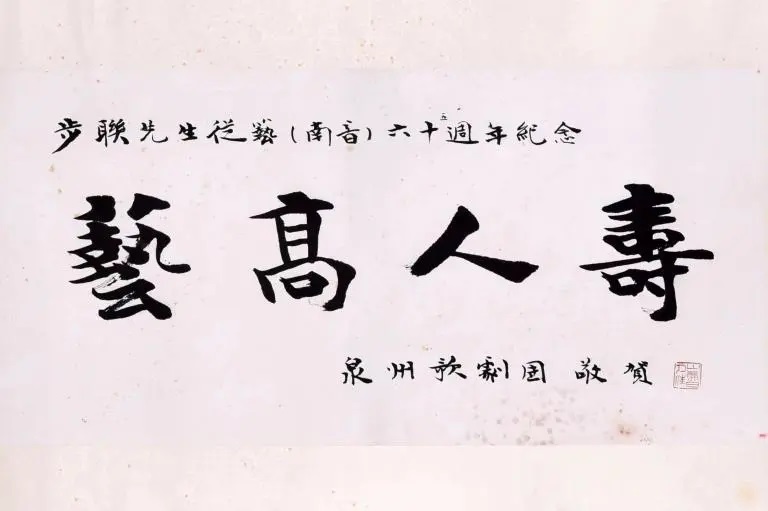 步聯先生從藝(南音)六十五週年紀念
藝高人壽
泉州歌劇团 敬賀